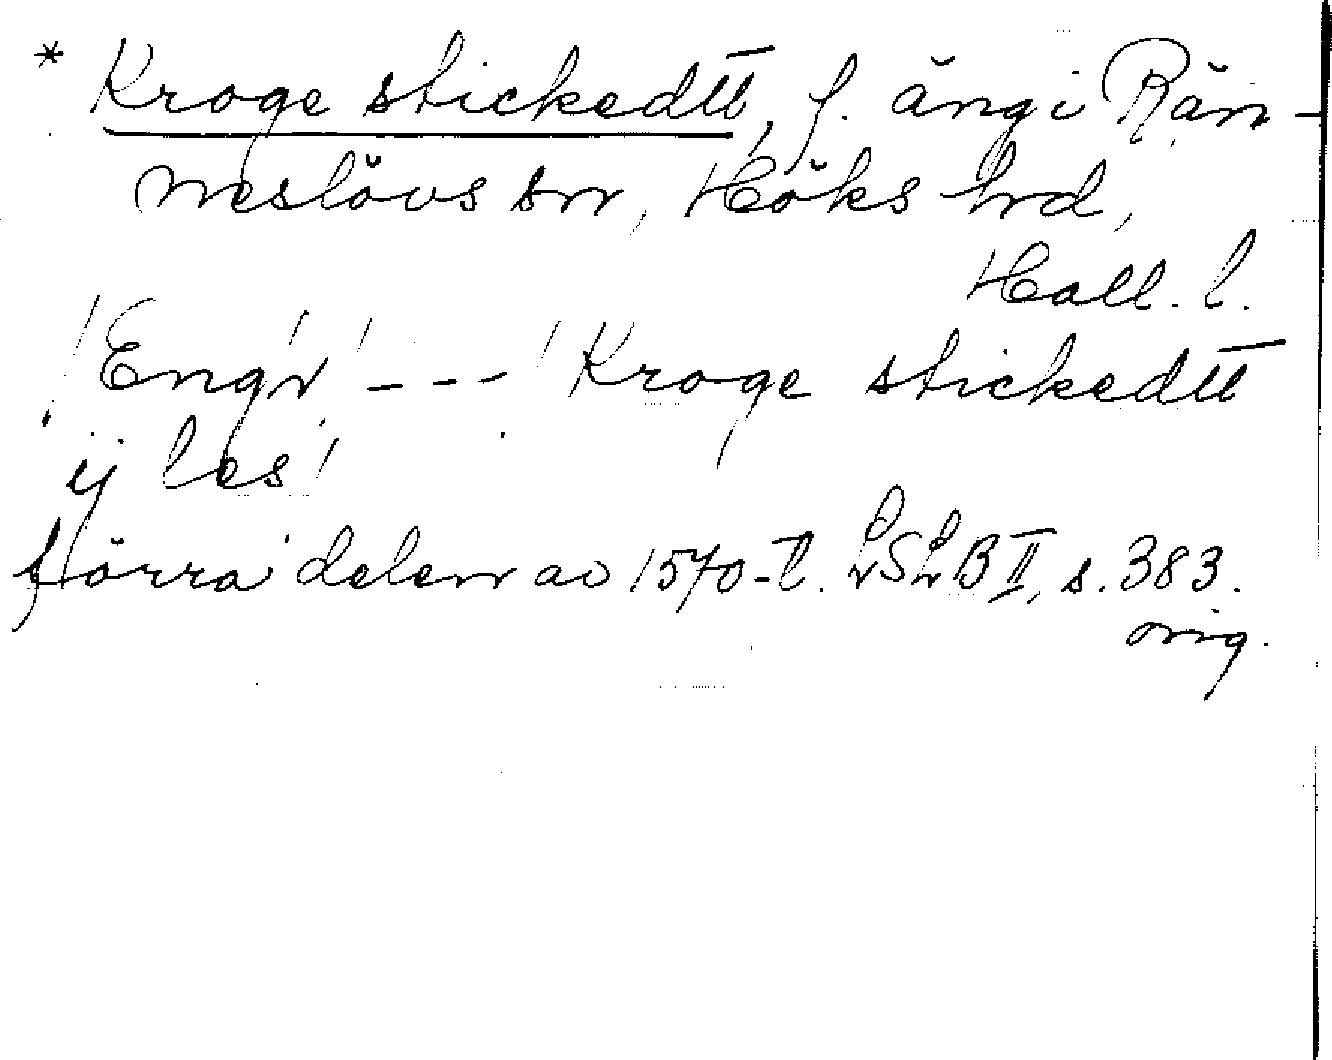 * Kroge stickedtt, f. äng i Rän-
neslövs sn, Höks hrd,
Hall. l.
/Engn/ --- / Kroge stickedtt
ij les /
förra delen av 1570-t. LSLB II, s. 383.
orig.